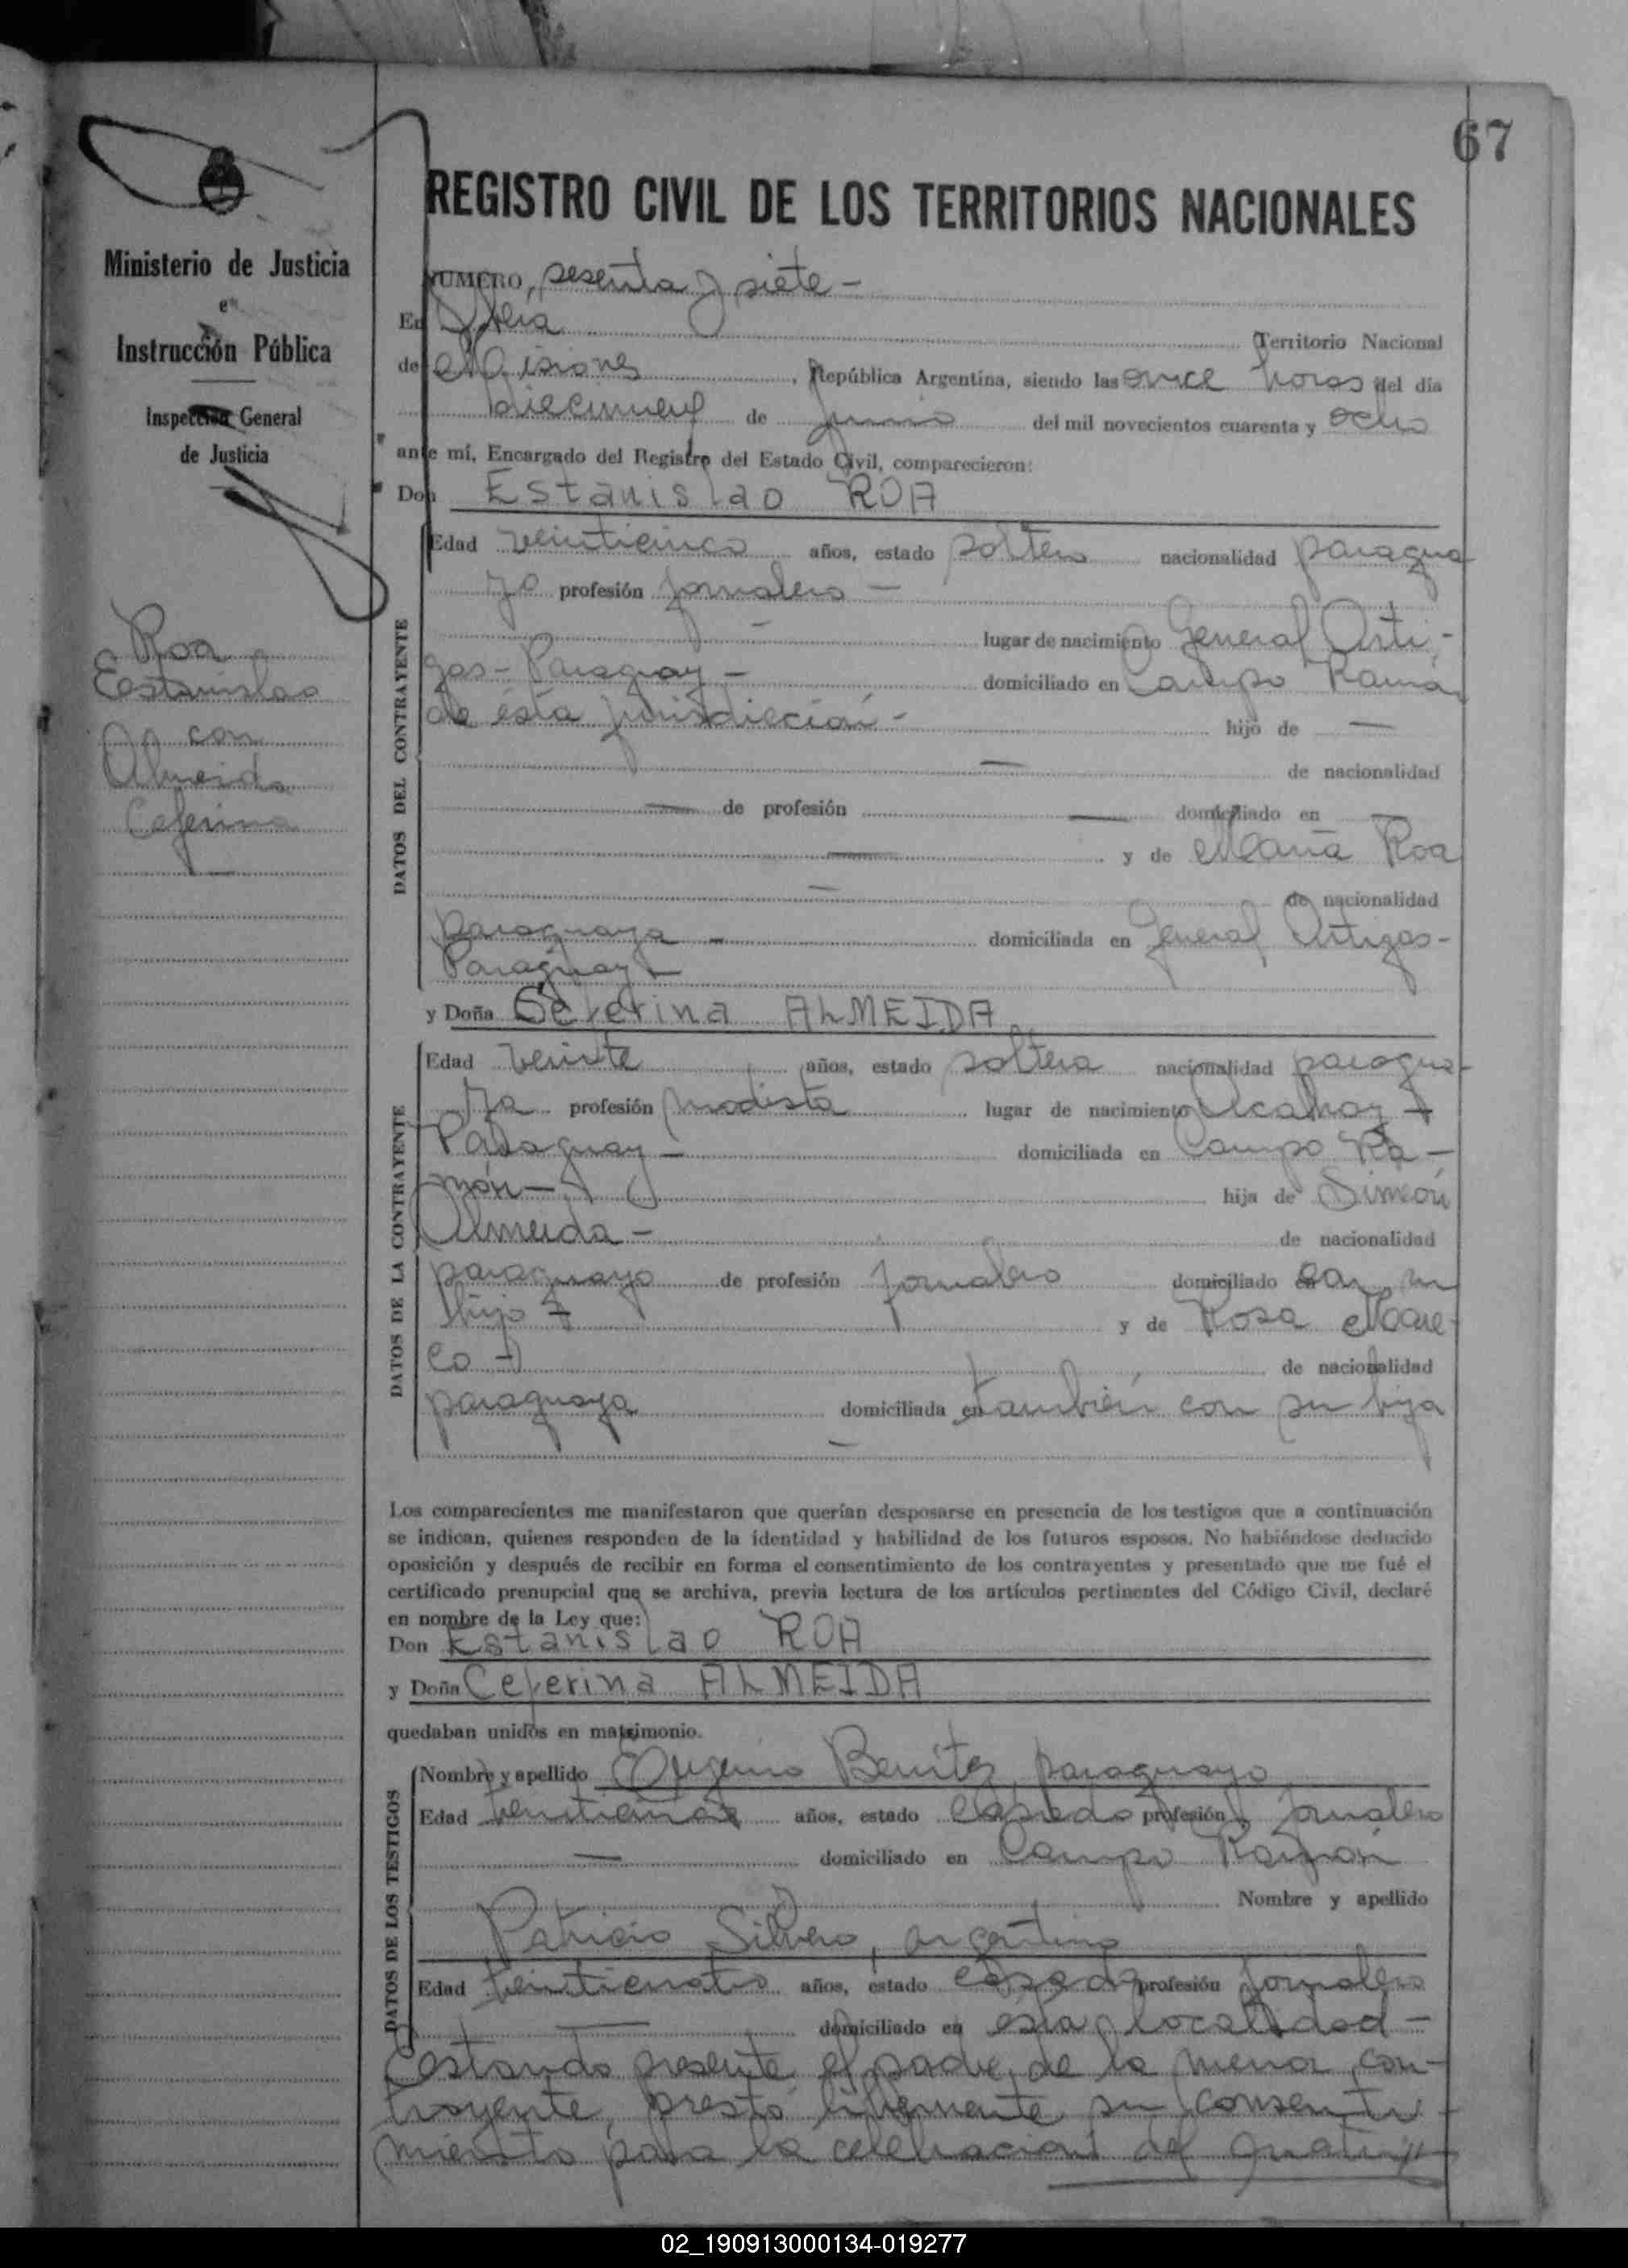 67
Ministerio de Justicia
e
Instrucción Pública
Inspección General
de Justicia
Roa
Estanislao
con
Almeida
Ceferina
REGISTRO CIVIL DE LOS TERRITORIOS NACIONALES
NUMERO, sesenta y siete -
En Obera Territorio Nacional
de Misiones, República Argentina, siendo las once horas del día
diecinueve de junio del mil novecientos cuarenta y ocho
ante mí, Encargado del Registro del Estado Civil, comparecieron:
Don Estanislao ROA
DATOS DEL CONTRAYENTE
Edad veinticinco años, estado soltero nacionalidad paragua
yo profesión jornalero -
lugar de nacimiento General Arti-
gas - Paraguay - domiciliado en Campo Ramón
de ésta jurisdicción - hijo de -
- de nacionalidad
- de profesión - domiciliado en -
- y de María Roa
- de nacionalidad
paraguaya - domiciliada en General Artigas -
Paraguay -
y Doña Ceferina ALMEIDA
DATOS DE LA CONTRAYENTE
Edad veinte años, estado soltera nacionalidad paragua-
ya profesión modista lugar de nacimiento
Paraguay - domiciliada en Campo Ra-
món - hija de Simeón
Almeida - de nacionalidad
paraguayo de profesión jornalero domiciliado en su
hija y de Rosa
co - de nacionalidad
paraguaya domiciliada en también con su hija
-
Los comparecientes me manifestaron que querían desposarse en presencia de los testigos que a continuación
se indican, quienes responden de la identidad y habilidad de los futuros esposos. No habiéndose deducido
oposición y después de recibir en forma el consentimiento de los contrayentes y presentado que me fué el
certificado prenupcial que se archiva, previa lectura de los artículos pertinentes del Código Civil, declaré
en nombre de la Ley que:
Don Estanislao ROA
y Doña Ceferina ALMEIDA
quedaban unidos en matrimonio.
DATOS DE LOS TESTIGOS
Nombre y apellido Eugenio Benitez, paraguayo
Edad años, estado casado profesión jornalero
- domiciliado en Campo Ramón
Nombre y apellido
Patricio Silvero, argentino
Edad veinticuatro años, estado casado profesión jornalero
- domiciliado en esta localidad -
Estando presente el padre de la menor con-
trayente, prestó libremente su consenti-
miento para la celebración del matrim-
02_190913000134-019277